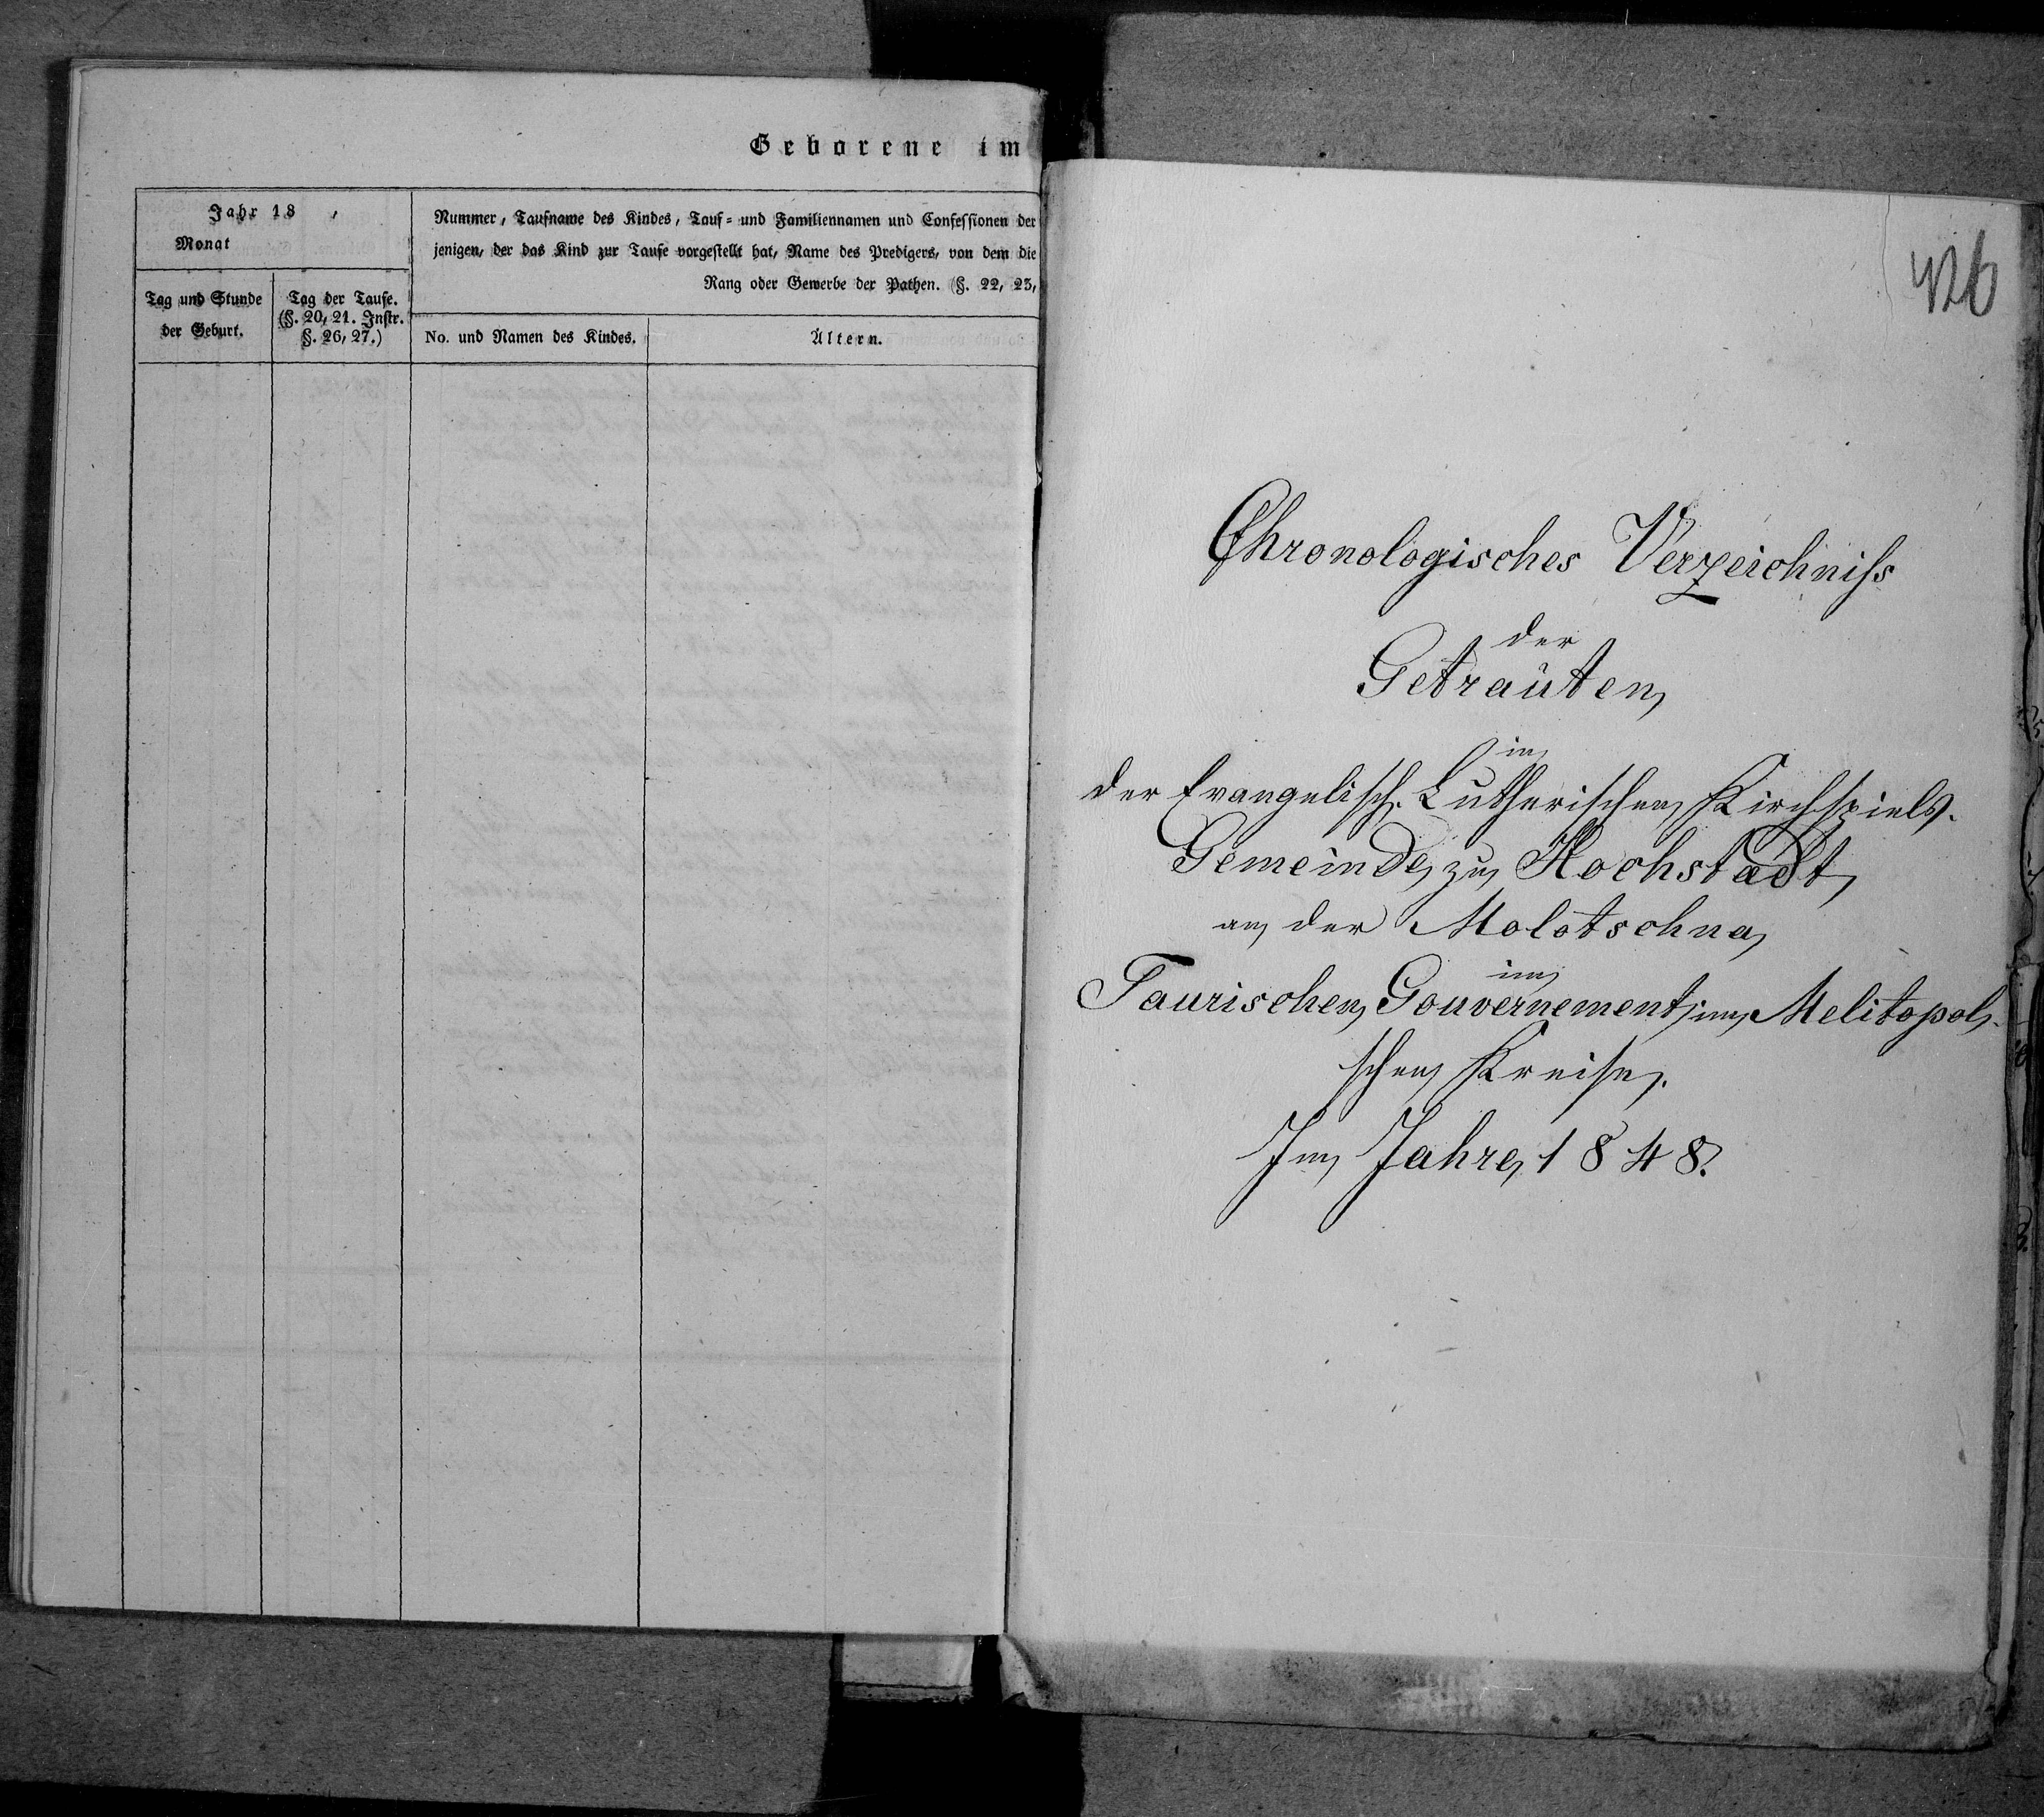 Geborene im
Jahr 18 ,
Monat
Nummer, Taufname des Kindes, Tauf- und Familiennamen und Confessionen der
jenigen, der das Kind zur Taufe vorgestellt hat, Name des Predigers, von dem die
Rang oder Gewerbe der Pathen. (§. 22, 23,
Tag und Stunde
der Geburt.
Tag der Taufe.
(§. 20, 21. Instr.
§. 26, 27.)
No. und Namen des Kindes.
Ältern.
426
Chronologisches Verzeichniss
der
Getrauten
in
der Evangelisch-Lutherischen Kirchspiels-
Gemeinde zu Hochstädt
an der Molotschna
im
Taurischen Gouvernement im Melitopol-
schen Kreise.
Im Jahre 1848.